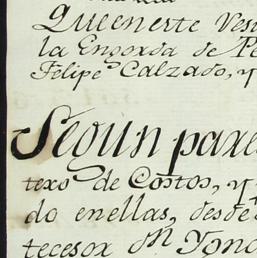 Queenerte Ves
la Engorda de Pe
Felipe Calzado, y
Segun pare
texo de Costos, y
do enellas, desde
tecesor Dn Ton